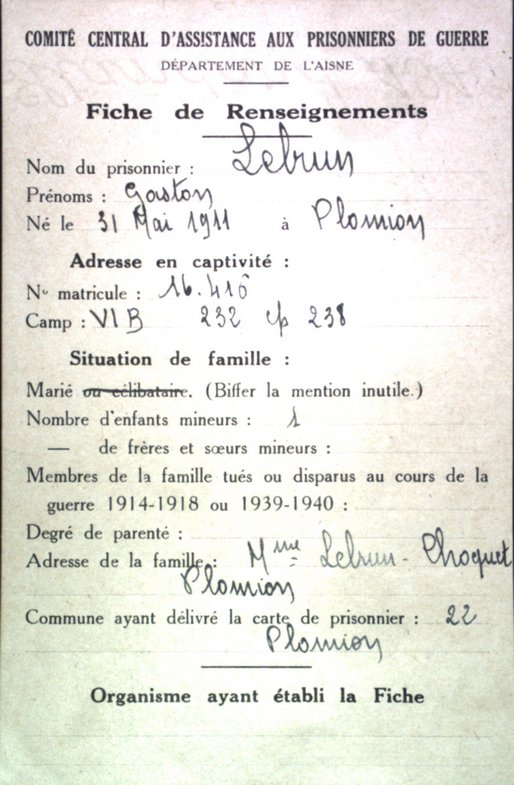 COMITÉ CENTRAL D'ASSISTANCE AUX PRISONNIERS DE GUERRE
DÉPARTEMENT DE L'AISNE
Fiche de Renseignements
Nom du prisonnier : Lebrun
Prénoms : Gaston
Né le 31 Mai 1911 à Plomion
Adresse en captivité :
No matricule : 16.410
Camp : VI B 232 cp 238
Situation de famille :
Marié ou célibataire. (Biffer la mention inutile.)
Nombre d'enfants mineurs : 1
— de frères et sœurs mineurs :
Membres de la famille tués ou disparus au cours de la
guerre 1914-1918 ou 1939-1940 :
Degré de parenté :
Adresse de la famille : Mme Lebrun-Choquet
Plomion
Commune ayant délivré la carte de prisonnier : 22
Plomion
Organisme ayant établi la Fiche